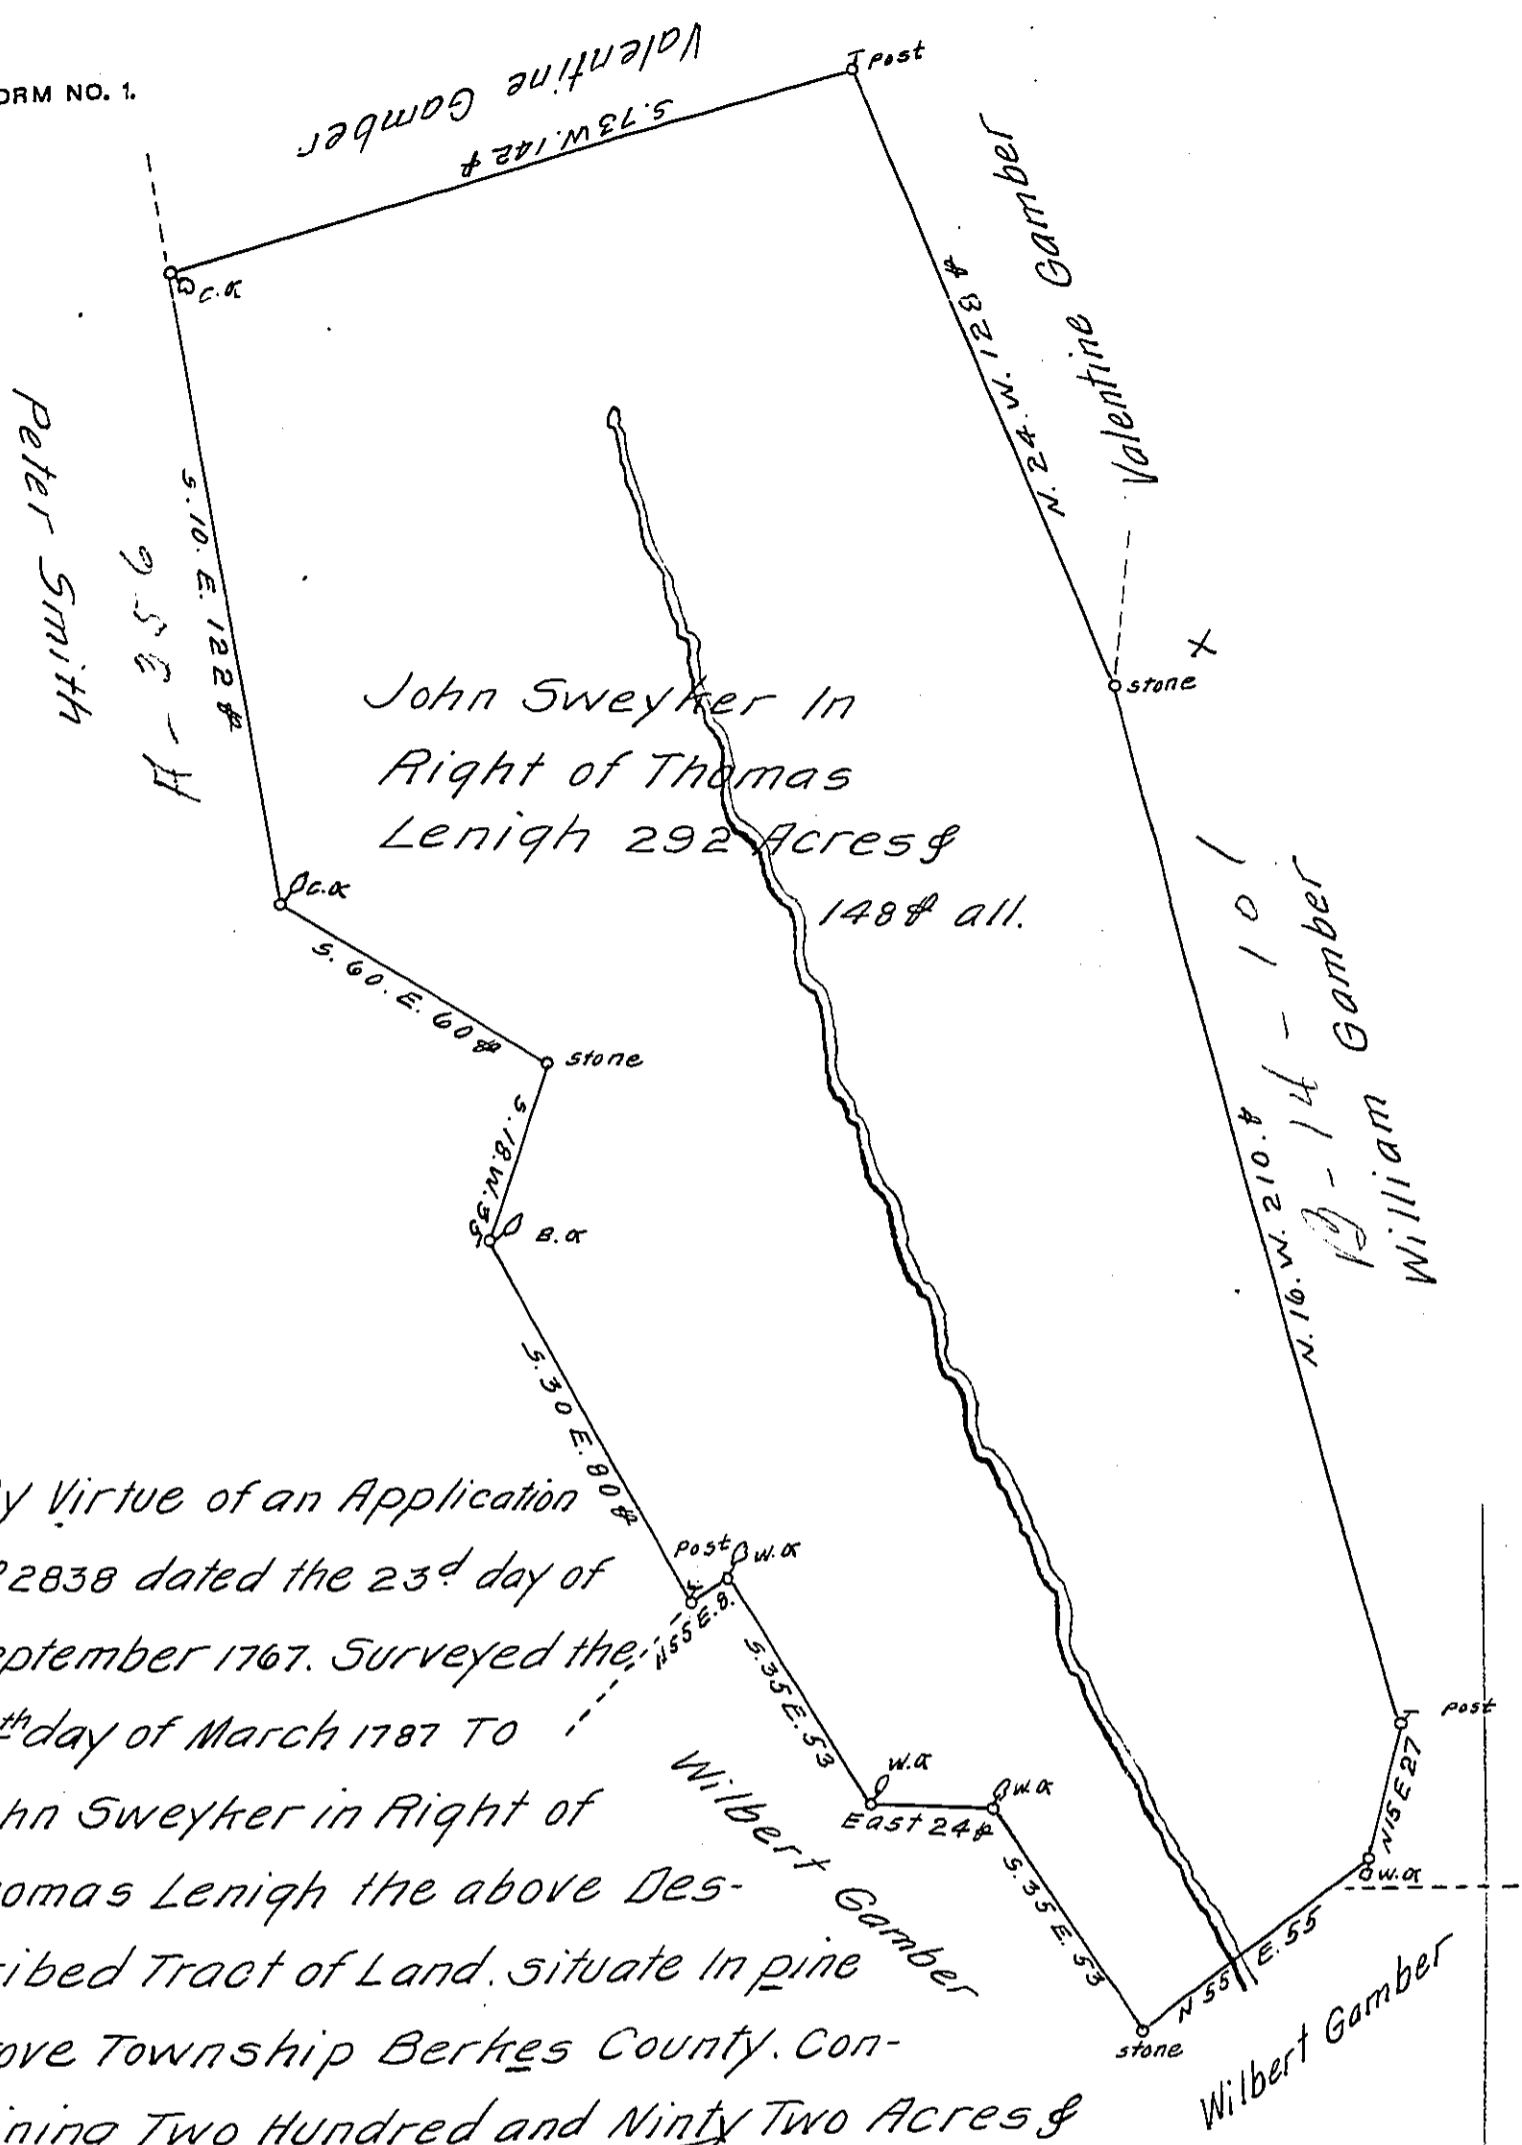 ORM NO. 1.
Valentine Gamber
S. 73 W. 142 ₱
Post
C.O.
Valentine Gamber
N. 24. W. 128 ₱
Peter Smith
A - 35 9
S. 10. E. 122 ₱
stone
X
John Sweyker In
Right of Thomas
Lenigh 292 Acres &
148 ₱ all.
C.O.
S. 60. E. 60 ₱
stone
S. 18. W. 35
B.O.
B - 14 - 101
William Gamber
N. 16. W. 210. ₱
S. 30 E. 80 ₱
Post
W.O.
N 55 E. 8.
S. 35 E. 53
W.O.
East 24 ₱
W.O.
S. 35 E. 53
stone
N 55 E. 55
W.O.
N 15 E 27
Post
Wilbert Gamber
Wilbert Gamber
y Virtue of an Application
º 2838 dated the 23d day of
eptember 1767. Surveyed the
th day of March 1787 To
hn Sweyker in Right of
omas Lenigh the above Des-
ribed Tract of Land. situate In pine
ove Township Berkes County. Con-
ining Two Hundred and Ninty Two Acres &